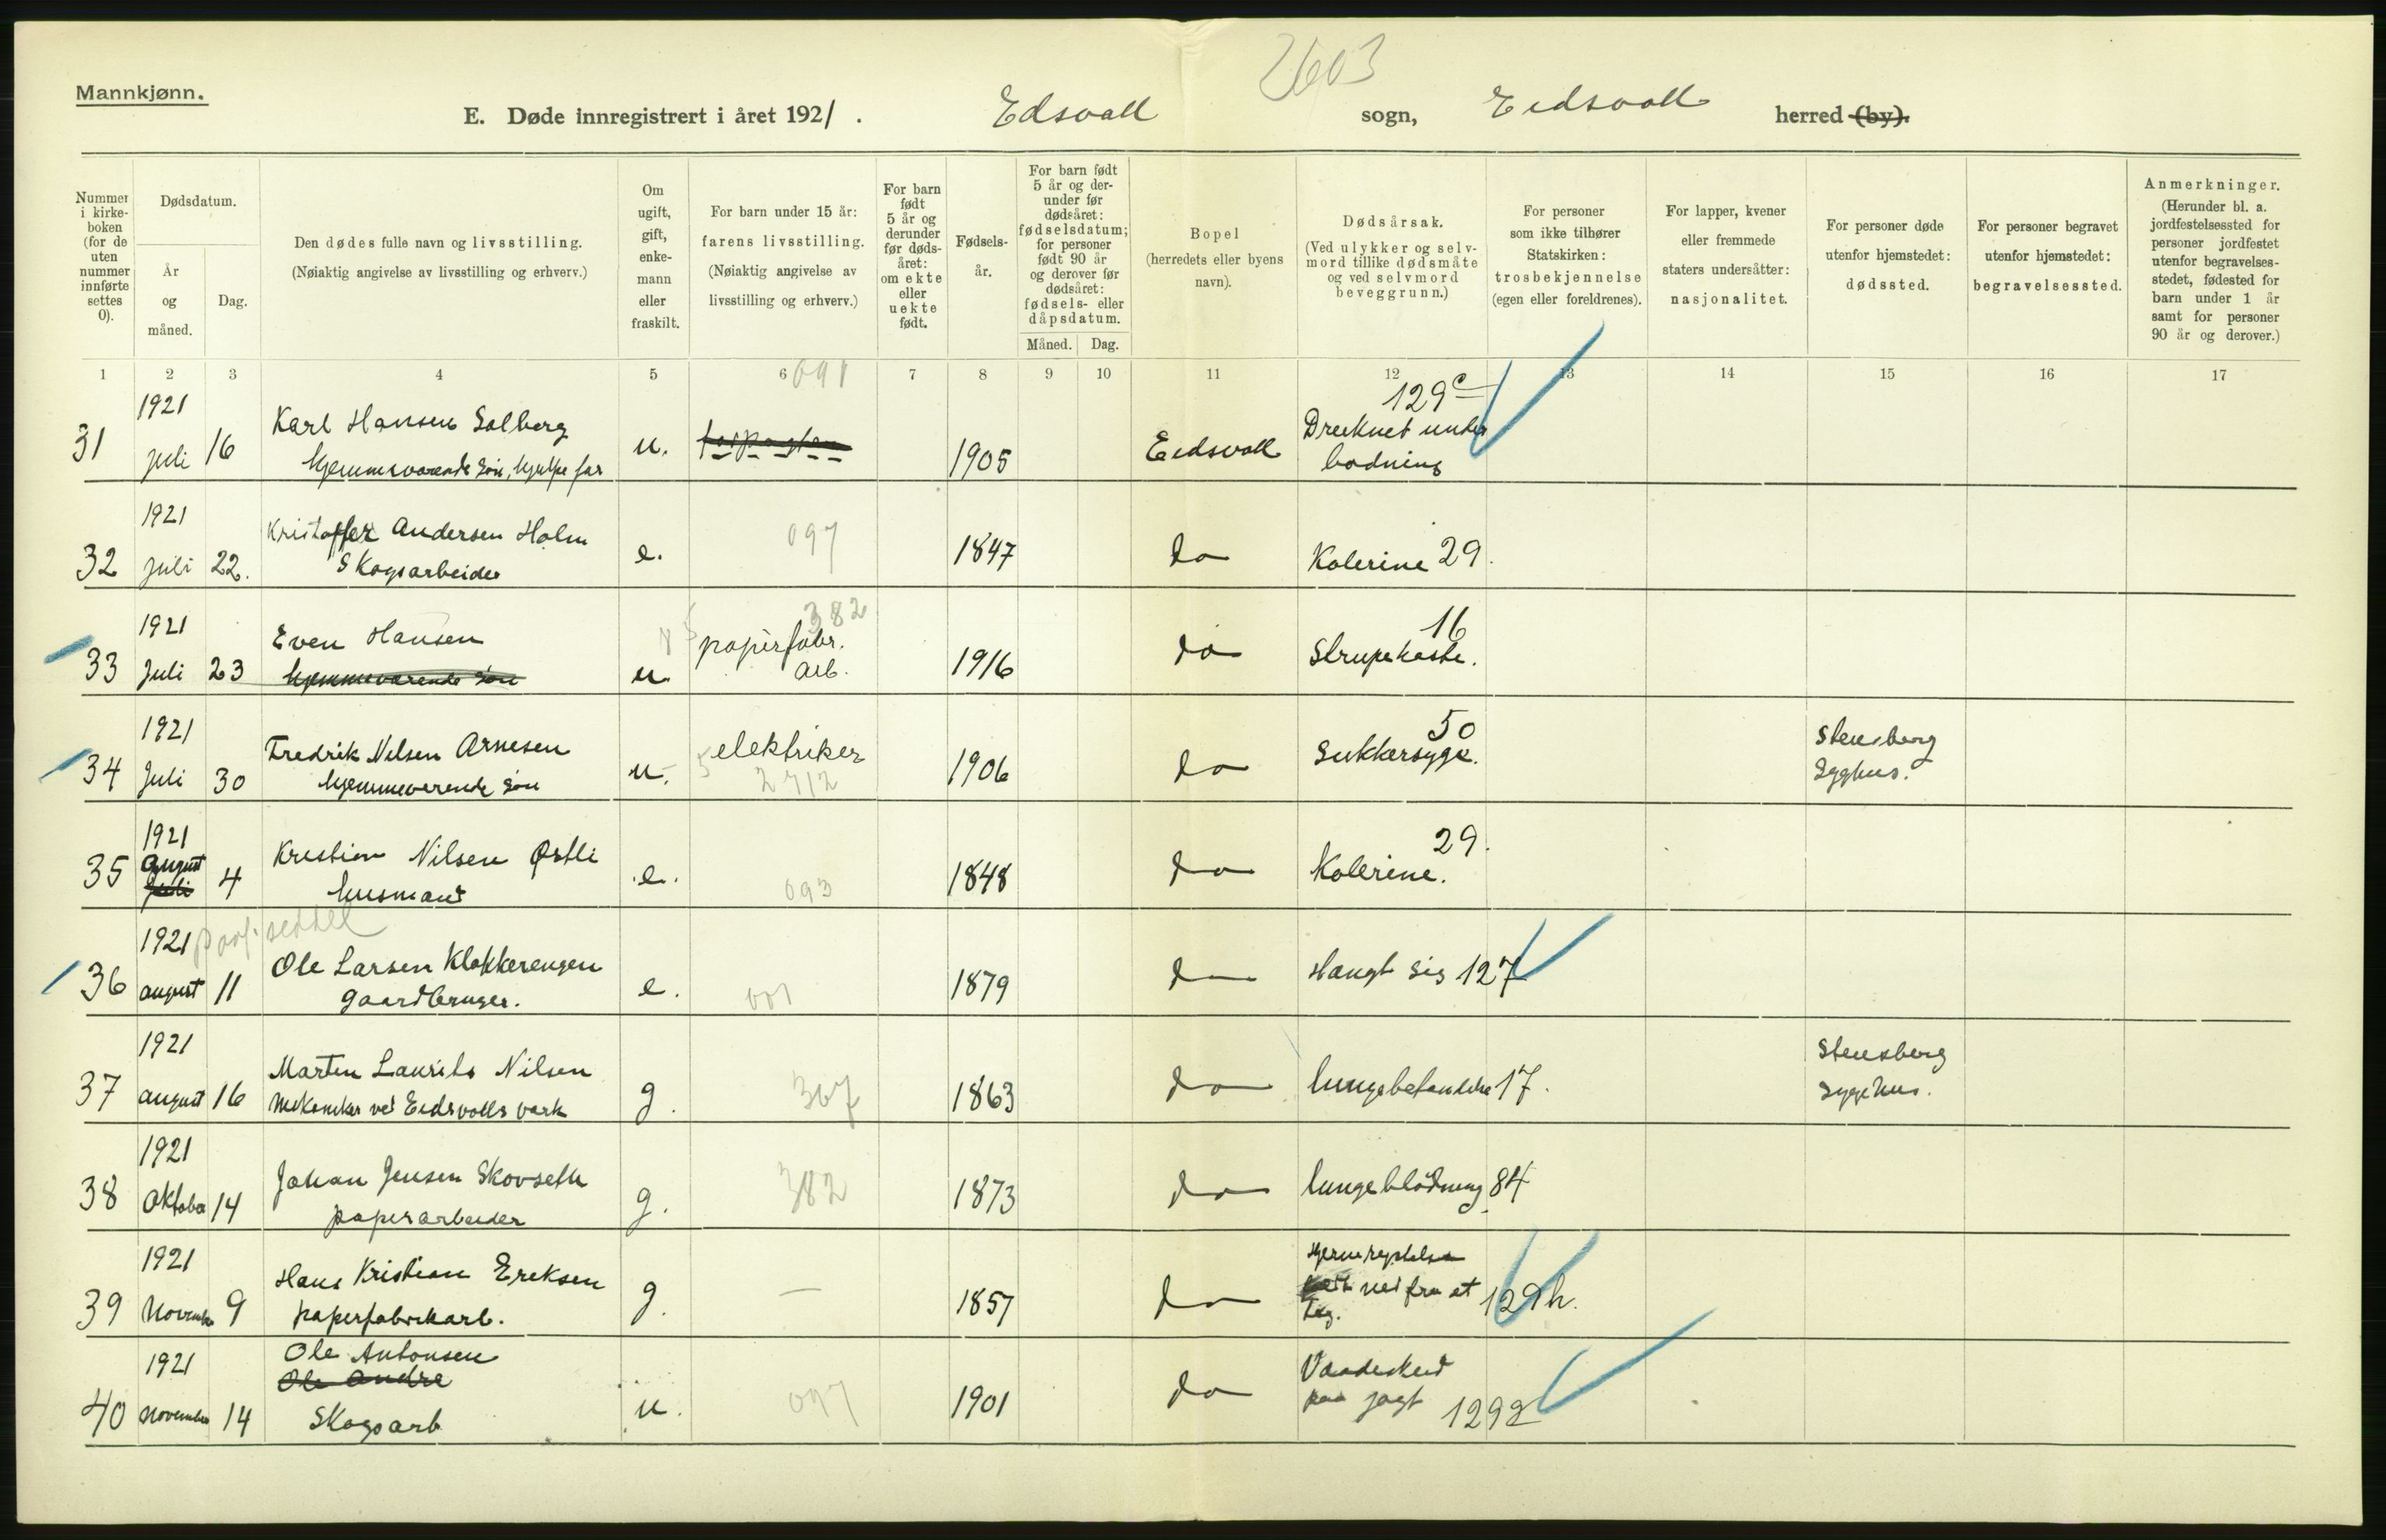 2603
Mannkjønn.
E. Døde innregistrert i året 1921.
Edsvoll sogn, Eidsvoll herred (by).
Nummer i kirkeboken (for de uten nummer innførte settes 0).
Dødsdatum.
År og måned.
Dag.
Den dødes fulle navn og livsstilling.
(Nøiaktig angivelse av livsstilling og erhverv.)
Om ugift, gift, enkemann eller fraskilt.
For barn under 15 år: farens livsstilling. (Nøiaktig angivelse av livsstilling og erhverv.)
For barn født 5 år og derunder før dødsåret: om ekte eller uekte født.
Fødselsår.
For barn født 5 år og derunder før dødsåret: fødselsdatum; for personer født 90 år og derover før dødsåret: fødsels- eller dåpsdatum.
Måned. Dag.
Bopel (herredets eller byens navn).
Dødsårsak. (Ved ulykker og selvmord tillike dødsmåte og ved selvmord beveggrunn.)
For personer som ikke tilhører Statskirken: trosbekjennelse (egen eller foreldrenes).
For lapper, kvener eller fremmede staters undersåtter: nasjonalitet.
For personer døde utenfor hjemstedet: dødssted.
For personer begravet utenfor hjemstedet: begravelsessted.
Anmerkninger. (Herunder bl. a. jordfestelsessted for personer jordfestet utenfor begravelsesstedet, fødested for barn under 1 år samt for personer 90 år og derover.)
1 2 3 4 5 6 7 8 9 10 11 12 13 14 15 16 17
31 1921 juli 16 Karl Hansen Solberg hjemmevarende søn, hjelpe far u. 091 1905 Eidsvoll Drucknet under badning 129c
32 1921 juli 22. Kristoffer Andersen Holm Skogsarbeider e. 097 1847 do Kolerine 29.
33 1921 Juli 23 Even Hansen hjemmevarende søn u. papirfabr. arb. 382 1916 do Strupehoste. 16
34 1921 Juli 30 Fredrik Nilsen Arnesen hjemmeverende søn u. elektriker 2712 1906 do Sukkersyge. 50 Stensberg Sygehus.
35 1921 august juli 4 Kristian Nilsen Østli husmand e. 093 1848 do Kolerine. 29.
36 1921 august 11 Ole Larsen Klokkerengen gaardbruger. e. 001 1879 do Hængt sig 127
37 1921 august 16 Marten Laurits Nilsen mekaniker ved Eidsvolls værk g. 367 1863 do lungebetændelse 17. Stensberg Sygehus.
38 1921 Oktober 14 Johan Jensen Skovseth papirarbeider g. 382 1873 do lungeblødning 84
39 1921 November 9 Hans Kristian Ereksen papirfabrikarb. g. — 1857 do Hjernerystelse ned fra et 129h.
40 1921 november 14 Ole Antonsen Ole Andre Skogsarb u. 097 1901 do Vaadeskud paa jagt 129g